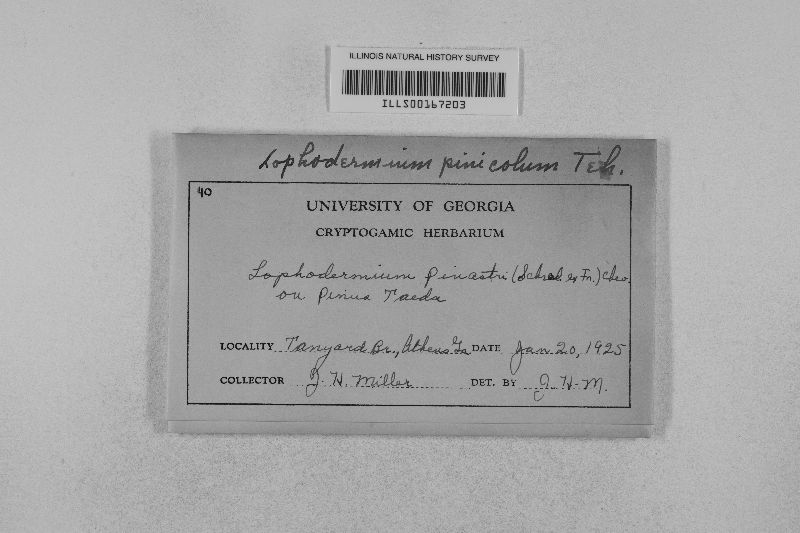 ILLINOIS NATURAL HISTORY SURVEY
ILLS00167203
Lophodermium pinicolum Teh.
40
UNIVERSITY OF GEORGIA
CRYPTOGAMIC HERBARIUM
Lophodermium pinastri (Schrad. ex Fr.) Chev.
on Pinus Taeda
LOCALITY Tanyard Br., Athens Ga DATE Jan 20, 1925
COLLECTOR J. H. Miller DET. BY J. H. M.